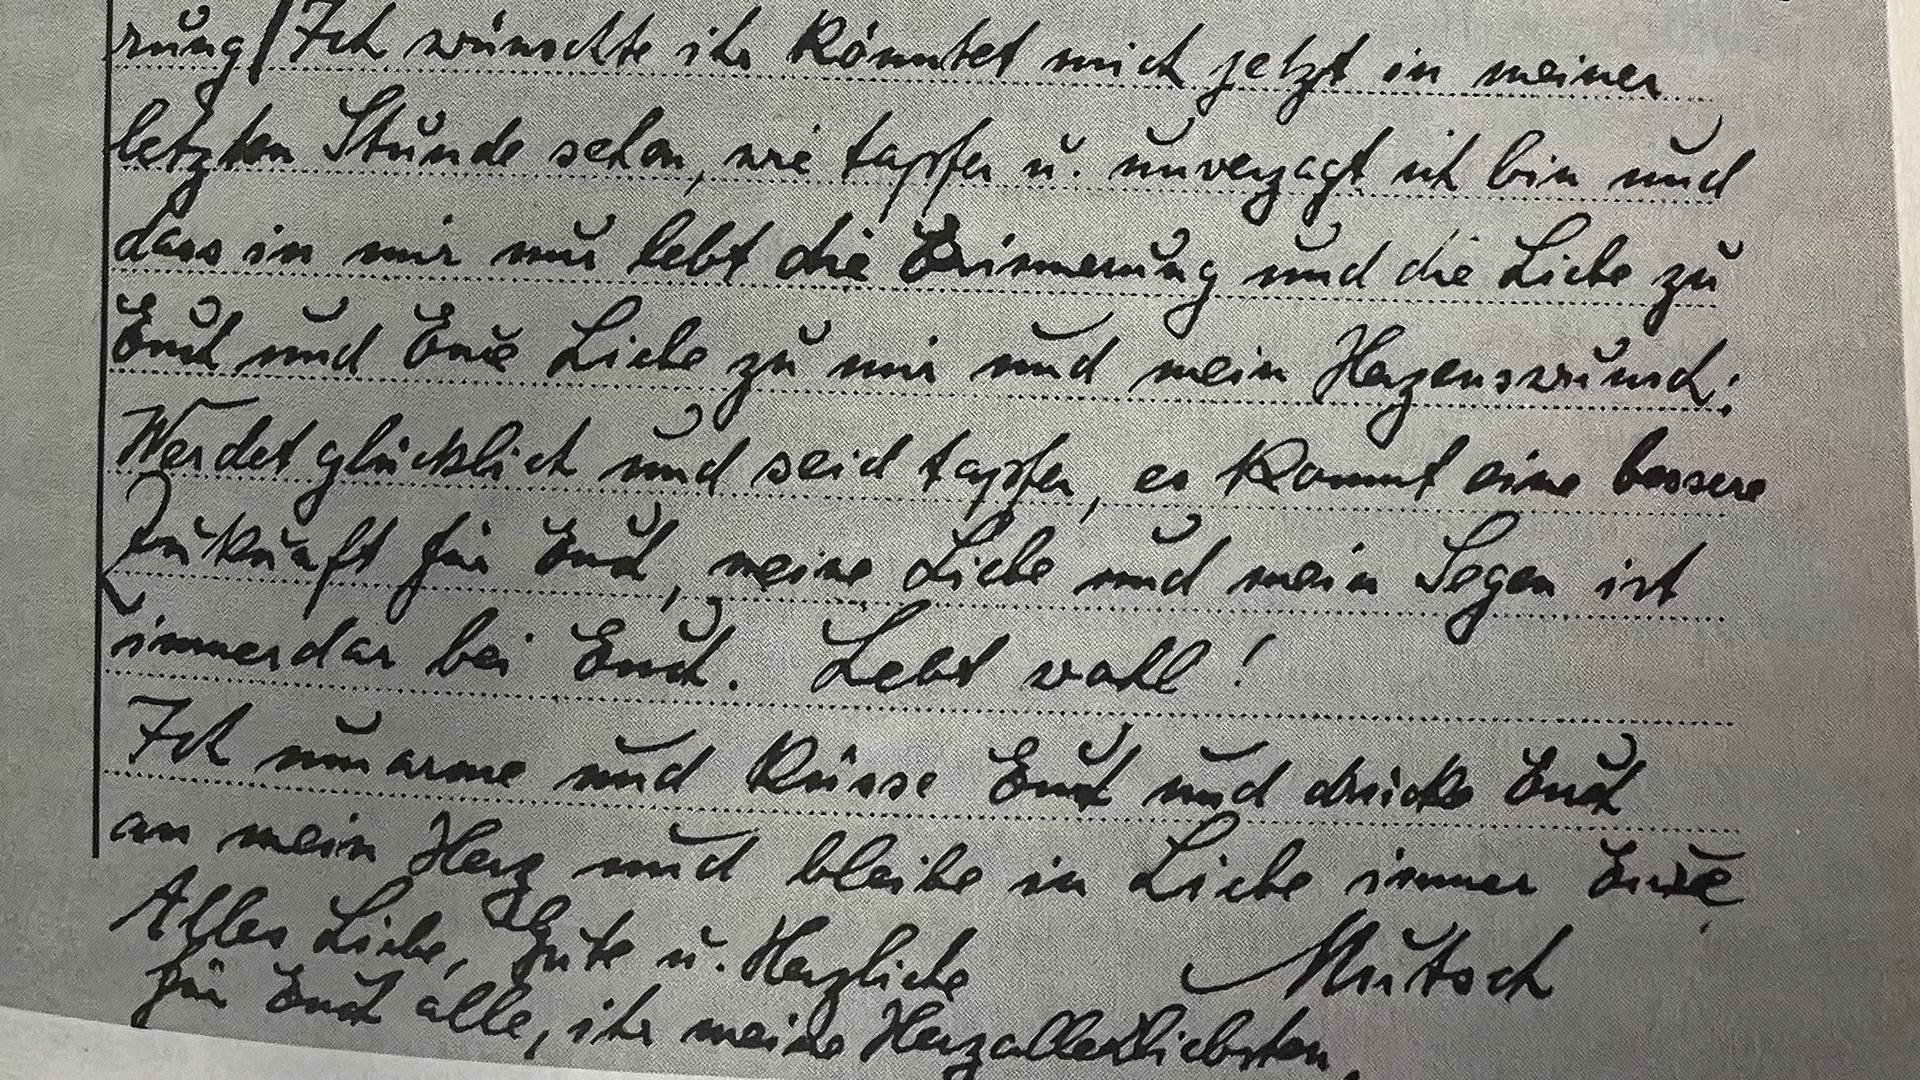 rung/Ich wünschte ihr könntet mich jetzt in meiner
letzten Stunde sehen, wie tapfer u. unverzagt ich bin und
dass in mir nur lebt die Erinnerung und die Liebe zu
Euch und Eure Liebe zu mir und mein Herzenswunsch:
Werdet glücklich und seid tapfer, es kommt eine bessere
Zukunft für Euch, meine Liebe und mein Segen ist
immerdar bei Euch. Lebt wohl!
Ich umarme und küsse Euch und drücke Euch
an mein Herz und bleibe in Liebe immer Eure
Alles Liebe, Gute u. Herzliche Mutsch
für Euch alle, ihr meine Herzallerliebsten.